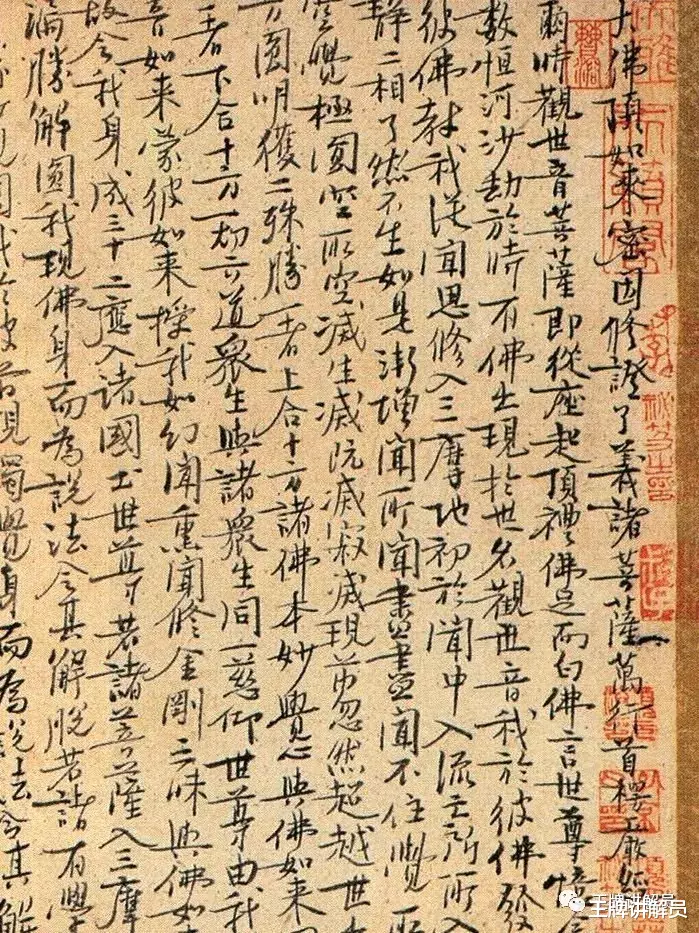 大佛頂如來密因修證了義諸菩薩萬行首楞嚴經
爾時觀世音菩薩即從座起頂禮佛足而白佛言世尊憶
數恒河沙劫於時有佛出現於世名觀世音我於彼佛發
彼佛教我從聞思修入三摩地初於聞中入流亡所所入
靜二相了然不生如是漸增聞所聞盡盡聞不住覺所
空覺極圓空所空滅生滅既滅寂滅現前忽然超越世
方圓明獲二殊勝一者上合十方諸佛本妙覺心與佛如來
者下合十方一切六道眾生與諸眾生同一慈仰世尊由我
音如來蒙彼如來授我如幻聞熏聞修金剛三昧與佛如
故令我身成三十二應入諸國土世尊若諸菩薩入三摩
滿勝解圓我現佛身而為說法令其解脫若諸有學
現圓我於彼前現獨覺身而為說法令其解
王牌讲解员